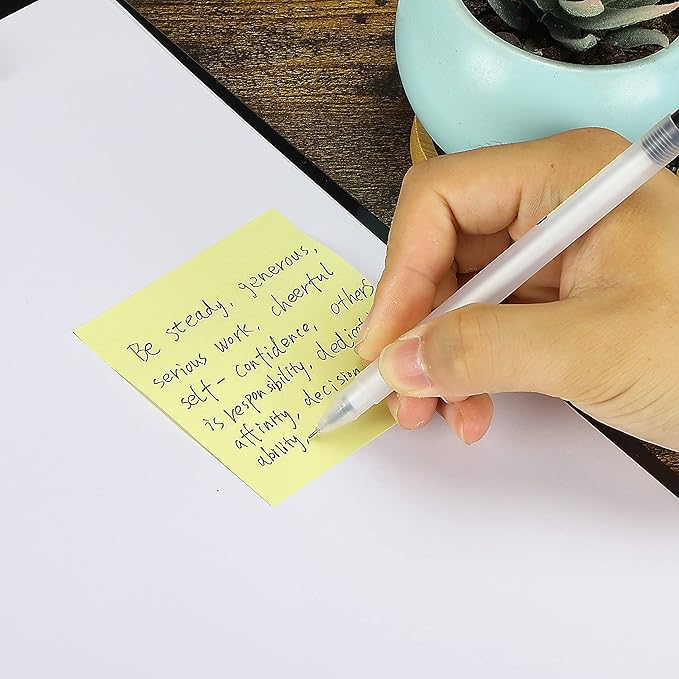 Be steady, generous,
serious work, cheerful
self-confidence, others
is responsibility,
affinity, decision
ability,